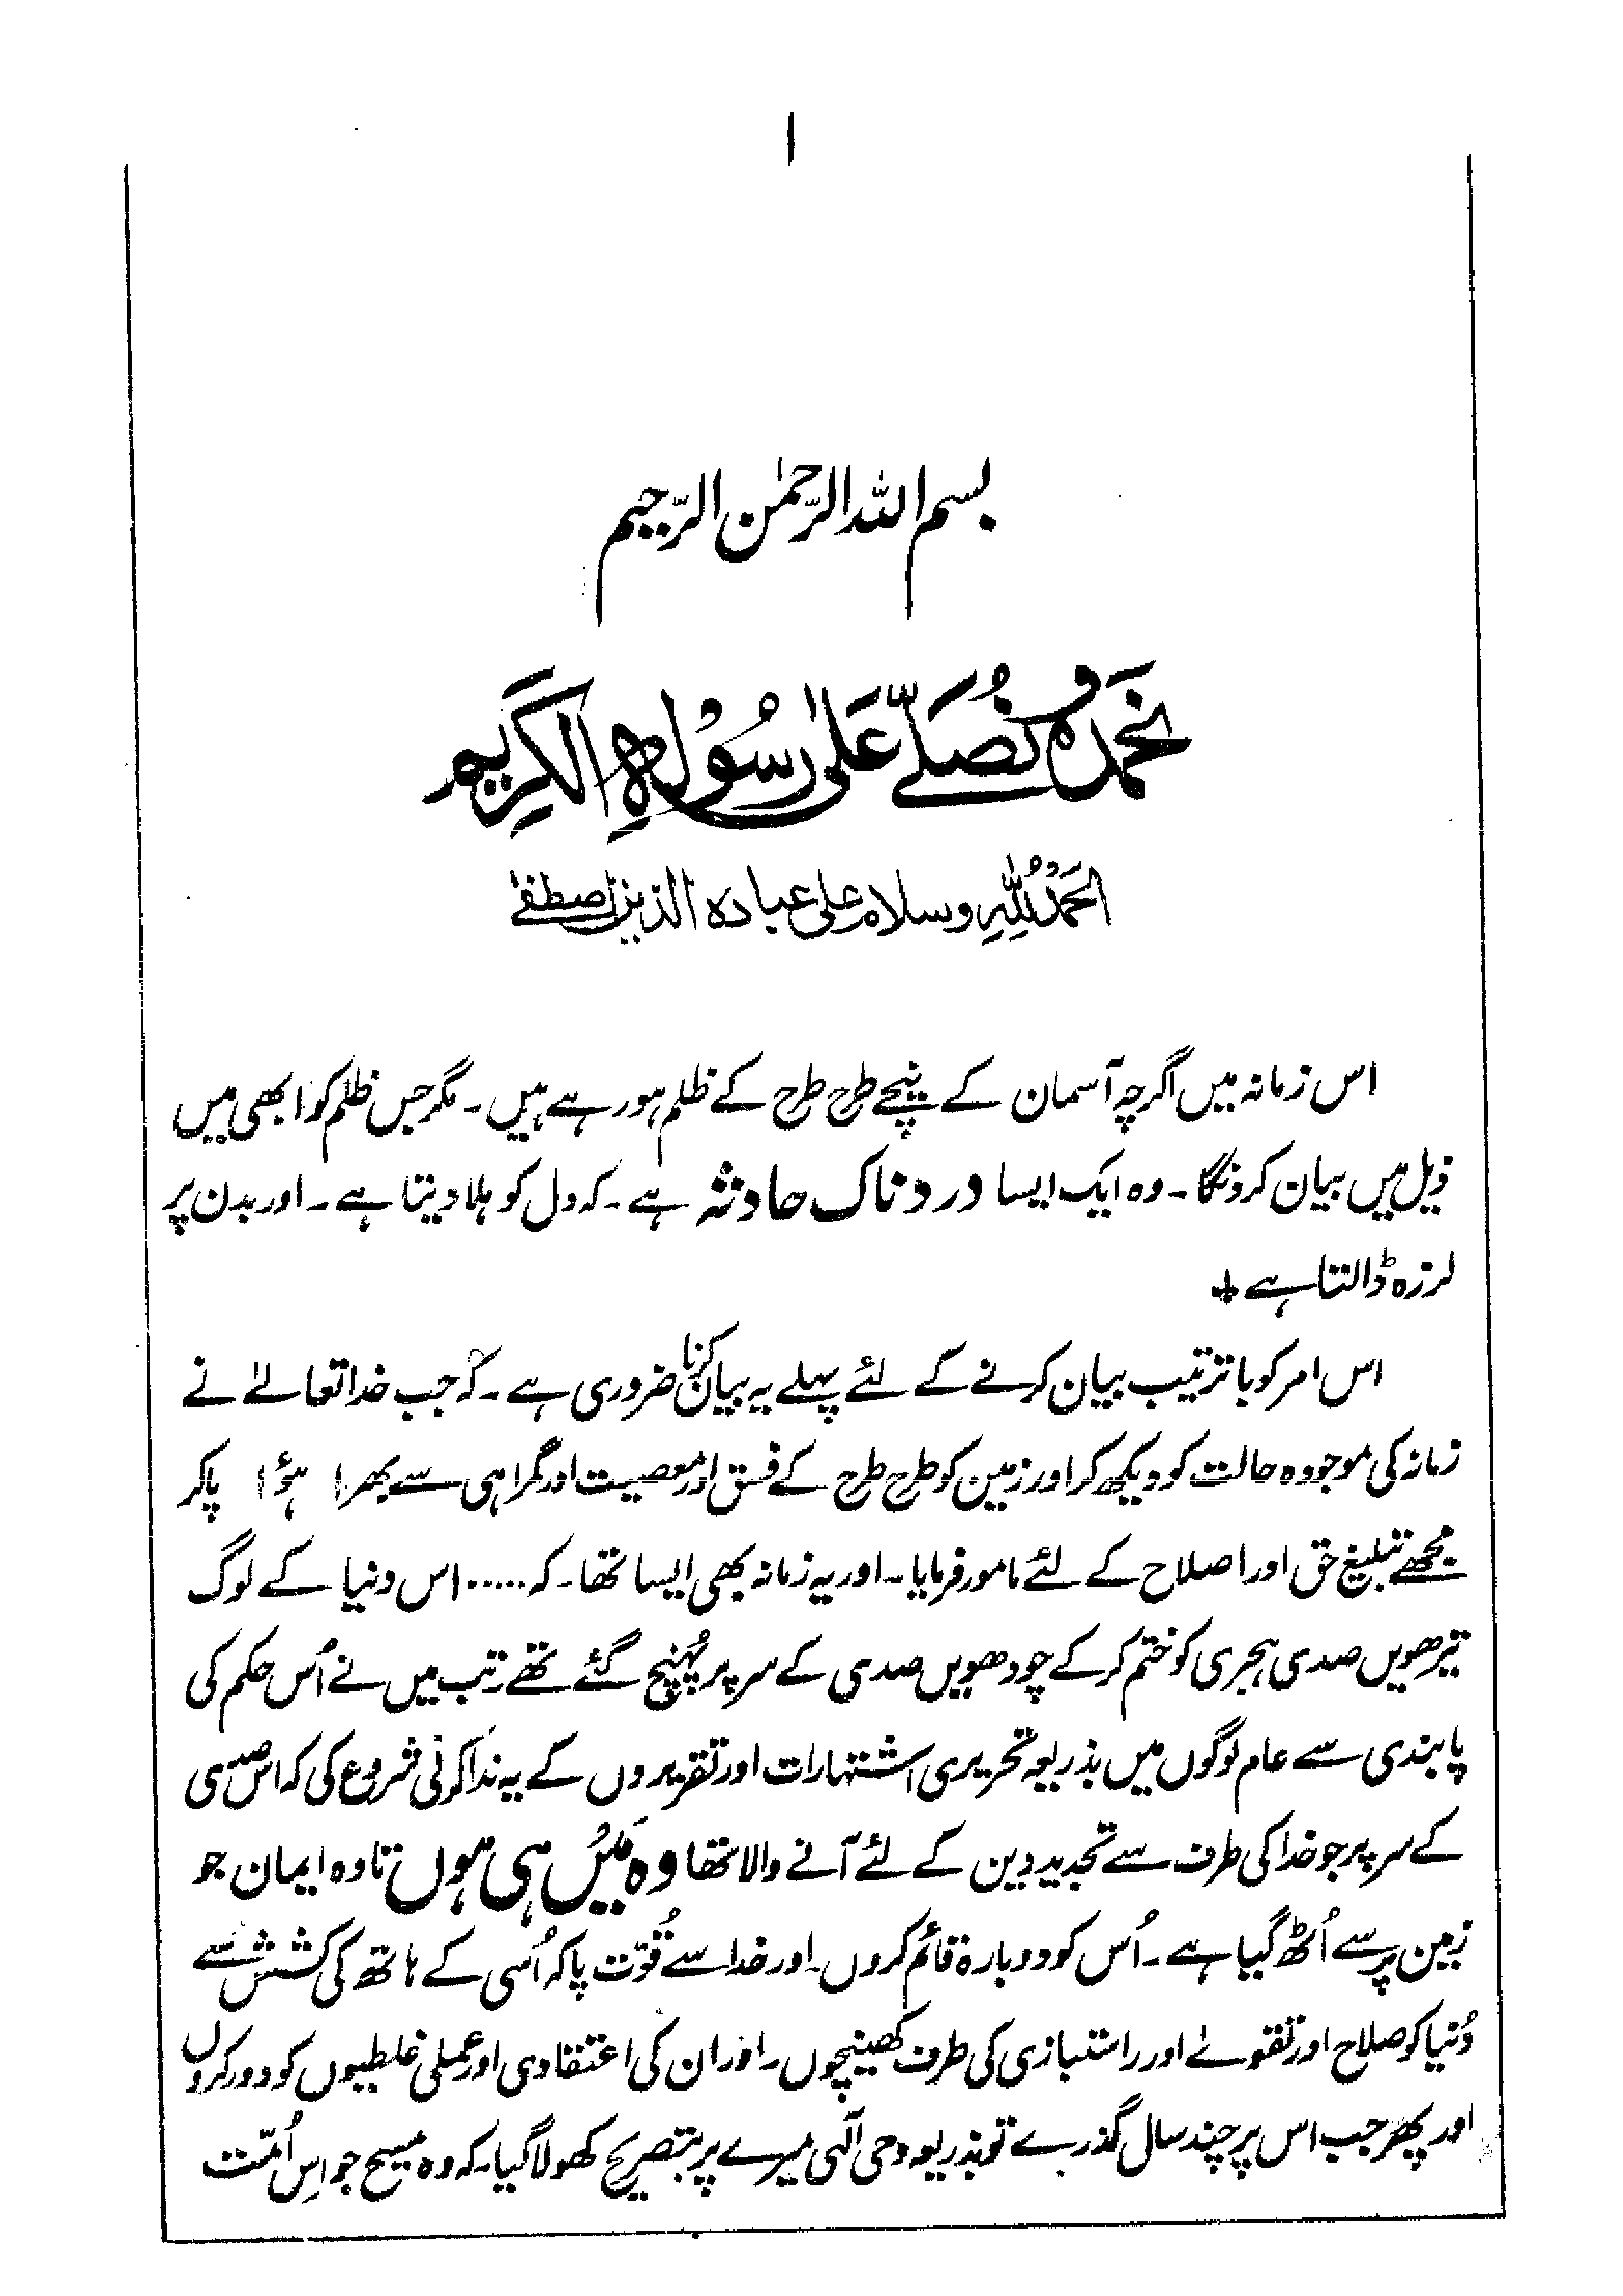 ۱
بسم اللہ الرّحمٰن الرّحیم
نحمدہ و نُصَلّے عَلیٰ رسُوْلہِ الکَرِیْم
الحَمْدُ لِلّٰہِ وسلام علی عبادہ الذین اصطفیٰ
اس زمانہ میں اگرچہ آسمان کے نیچے طرح طرح کے ظلم ہورہے ہیں۔ مگر جس ظلم کو ابھی میں
ذیل میں بیان کرونگا۔ وہ ایک ایسا دردناک حادثہ ہے۔ کہ دل کو ہلا دیتا ہے۔ اور بدن پر
لرزہ ڈالتا ہے +
اس امر کو باترتیب بیان کرنے کے لئے پہلے یہ بیان کرنا ضروری ہے۔ کہ جب خدا تعالےٰ نے
زمانہ کی موجودہ حالت کو دیکھ کر اور زمین کو طرح طرح کے فسق اور معصیت اور گمراہی سے بھرا ہؤا پاکر
مجھے تبلیغ حق اور اصلاح کے لئے مامور فرمایا۔ اور یہ زمانہ بھی ایسا تھا۔ کہ ..... اس دنیا کے لوگ
تیرھویں صدی ہجری کو ختم کرکے چودھویں صدی کے سر پر پُہنچ گئے تھے۔ تب میں نے اُس حکم کی
پابندی سے عام لوگوں میں بذریعہ تحریری اشتہارات اور تقریروں کے یہ ندا کرنی شروع کی کہ اس صدی
کے سر پر جو خدا کی طرف سے تجدید دین کے لئے آنے والا تھا وہ مَیں ہی ہوں تا وہ ایمان جو
زمین پر سے اُٹھ گیا ہے۔ اُس کو دوبارہ قائم کروں۔ اور خدا سے قُوّت پاکر اُسی کے ہاتھ کی کشش سے
دُنیا کو صلاح اور تقوےٰ اور راستبازی کی طرف کھینچوں۔ اور ان کی اعتقادی اور عملی غلطیوں کو دور کروں
اور پھر جب اس پر چند سال گذرے تو بذریعہ وحی الٰہی میرے پر بتصریح کھولا گیا۔ کہ وہ مسیح جو اِس اُمّت